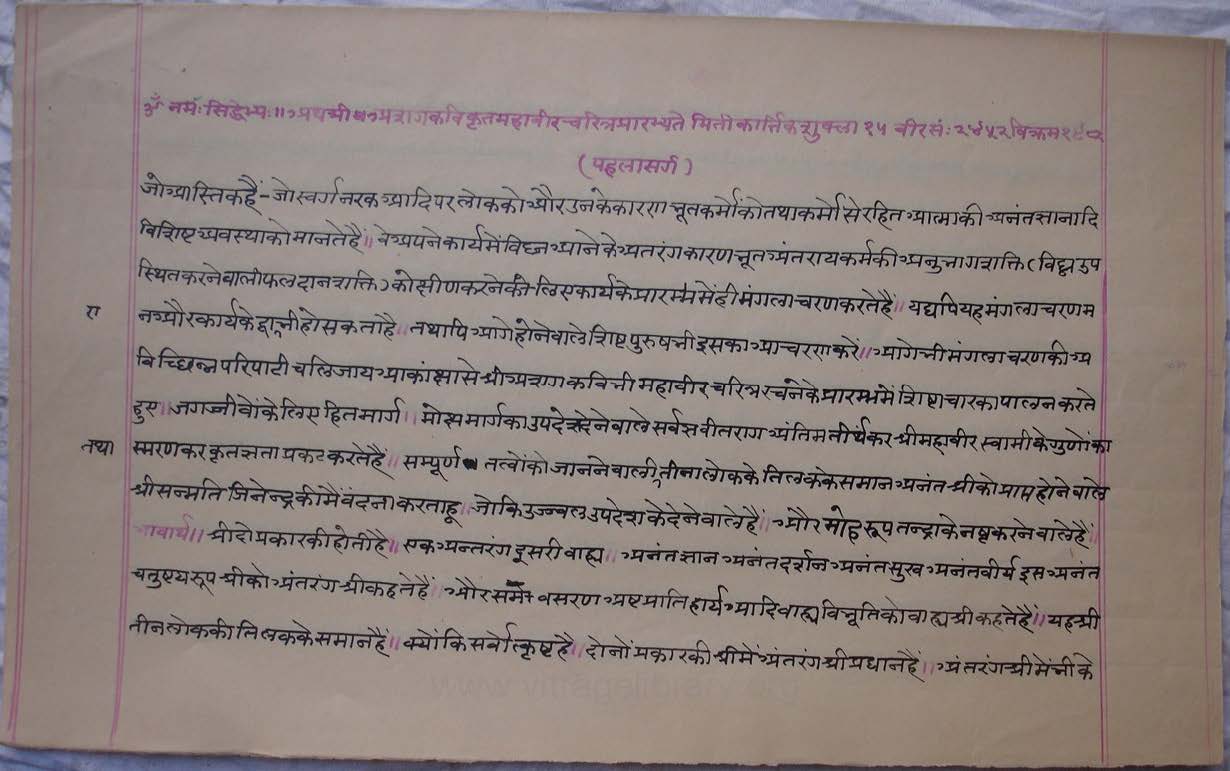 ॐ नमः सिद्धेभ्यः॥ अथ श्री अशगकविकृत महावीर चरित्र प्रारभ्यते मिती कार्त्तिक शुक्ला १५ वीर सं: २४५२ विक्रम
(पहला सर्ग)
जो आस्तिक हैं - जो स्वर्ग नरक आदि परलोक को और उनके कारण भूत कर्मों को तथा कर्मो से रहित आत्मा की अनंत ज्ञानादि
विशिष्ट अवस्था को मानते हैं॥ वे अपने कार्य में विघ्न आने के अंतरंग कारण भूत अंतराय कर्म की अनुभाग शक्ति (विघ्न उप
स्थित करने वाली फलदान शक्ति) को क्षीण करने के लिए कार्य के प्रारम्भ में ही मंगलाचरण करते हैं॥ यद्यपि यह मंगलाचरण म
न और कार्य के द्वारा भी हो सकता है॥ तथापि आगे होने वाले शिष्ट पुरुष भी इसका आचरण करें॥ आगे भी मंगलाचरण की अ
ए
विच्छिन्न परिपाटी चलि जाय आकांक्षा से श्री अशग कवि भी महावीर चरित्र रचने के प्रारम्भ में शिष्टाचार का पालन करते
हुए॥ जगज्जीवों के लिए हितमार्ग॥ मोक्षमार्ग का उपदेश देने वाले सर्वज्ञ वीतराग अंतिम तीर्थकर श्री महावीर स्वामी के गुणों का
तथा
स्मरण कर कृतज्ञता प्रकट करते हैं॥ सम्पूर्ण तत्वों को जानने वाली तीना लोक के तिलक के समान अनंत श्री को प्राप्त होने वाले
श्री सन्मति जिनेन्द्र की मैं वंदना करता हू॥ जो कि उज्ज्वल उपदेश के देने वाले हैं॥ और मोह रूप तन्द्रा के नष्ट करने वाले हैं॥
भावार्थ॥ श्री दो प्रकार की होती है॥ एक अन्तरंग दूसरी वाह्य॥ अनंत ज्ञान अनंत दर्शन अनंत सुख अनंत वीर्य इस अनंत
चतुष्टय रूप श्री को अंतरंग श्री कहते हैं॥ और समवसरण अष्ट प्रातिहार्य आदि वाह्य विभूति को वाह्य श्री कहते हैं॥ यह श्री
तीन लोक की तिलक के समान हैं॥ क्योंकि सर्वोत्कृष्ट है॥ दोनों प्रकार की श्री में अंतरंग श्री प्रधान हैं॥ अंतरंग श्री में भी के
www.vitragelibrary.org